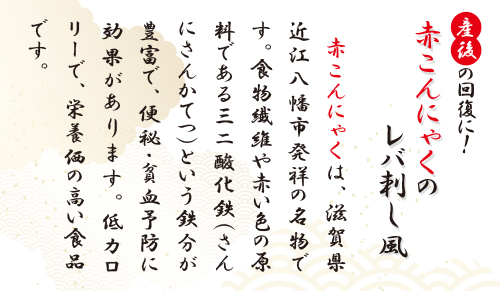 産後の回復に！
赤こんにゃくの
レバ刺し風
赤こんにゃくは、滋賀県
近江八幡市発祥の名物で
す。食物繊維や赤い色の原
料である三二酸化鉄(さん
にさんかてつ)という鉄分が
豊富で、便秘・貧血予防に
効果があります。低カロ
リーで、栄養価の高い食品
です。